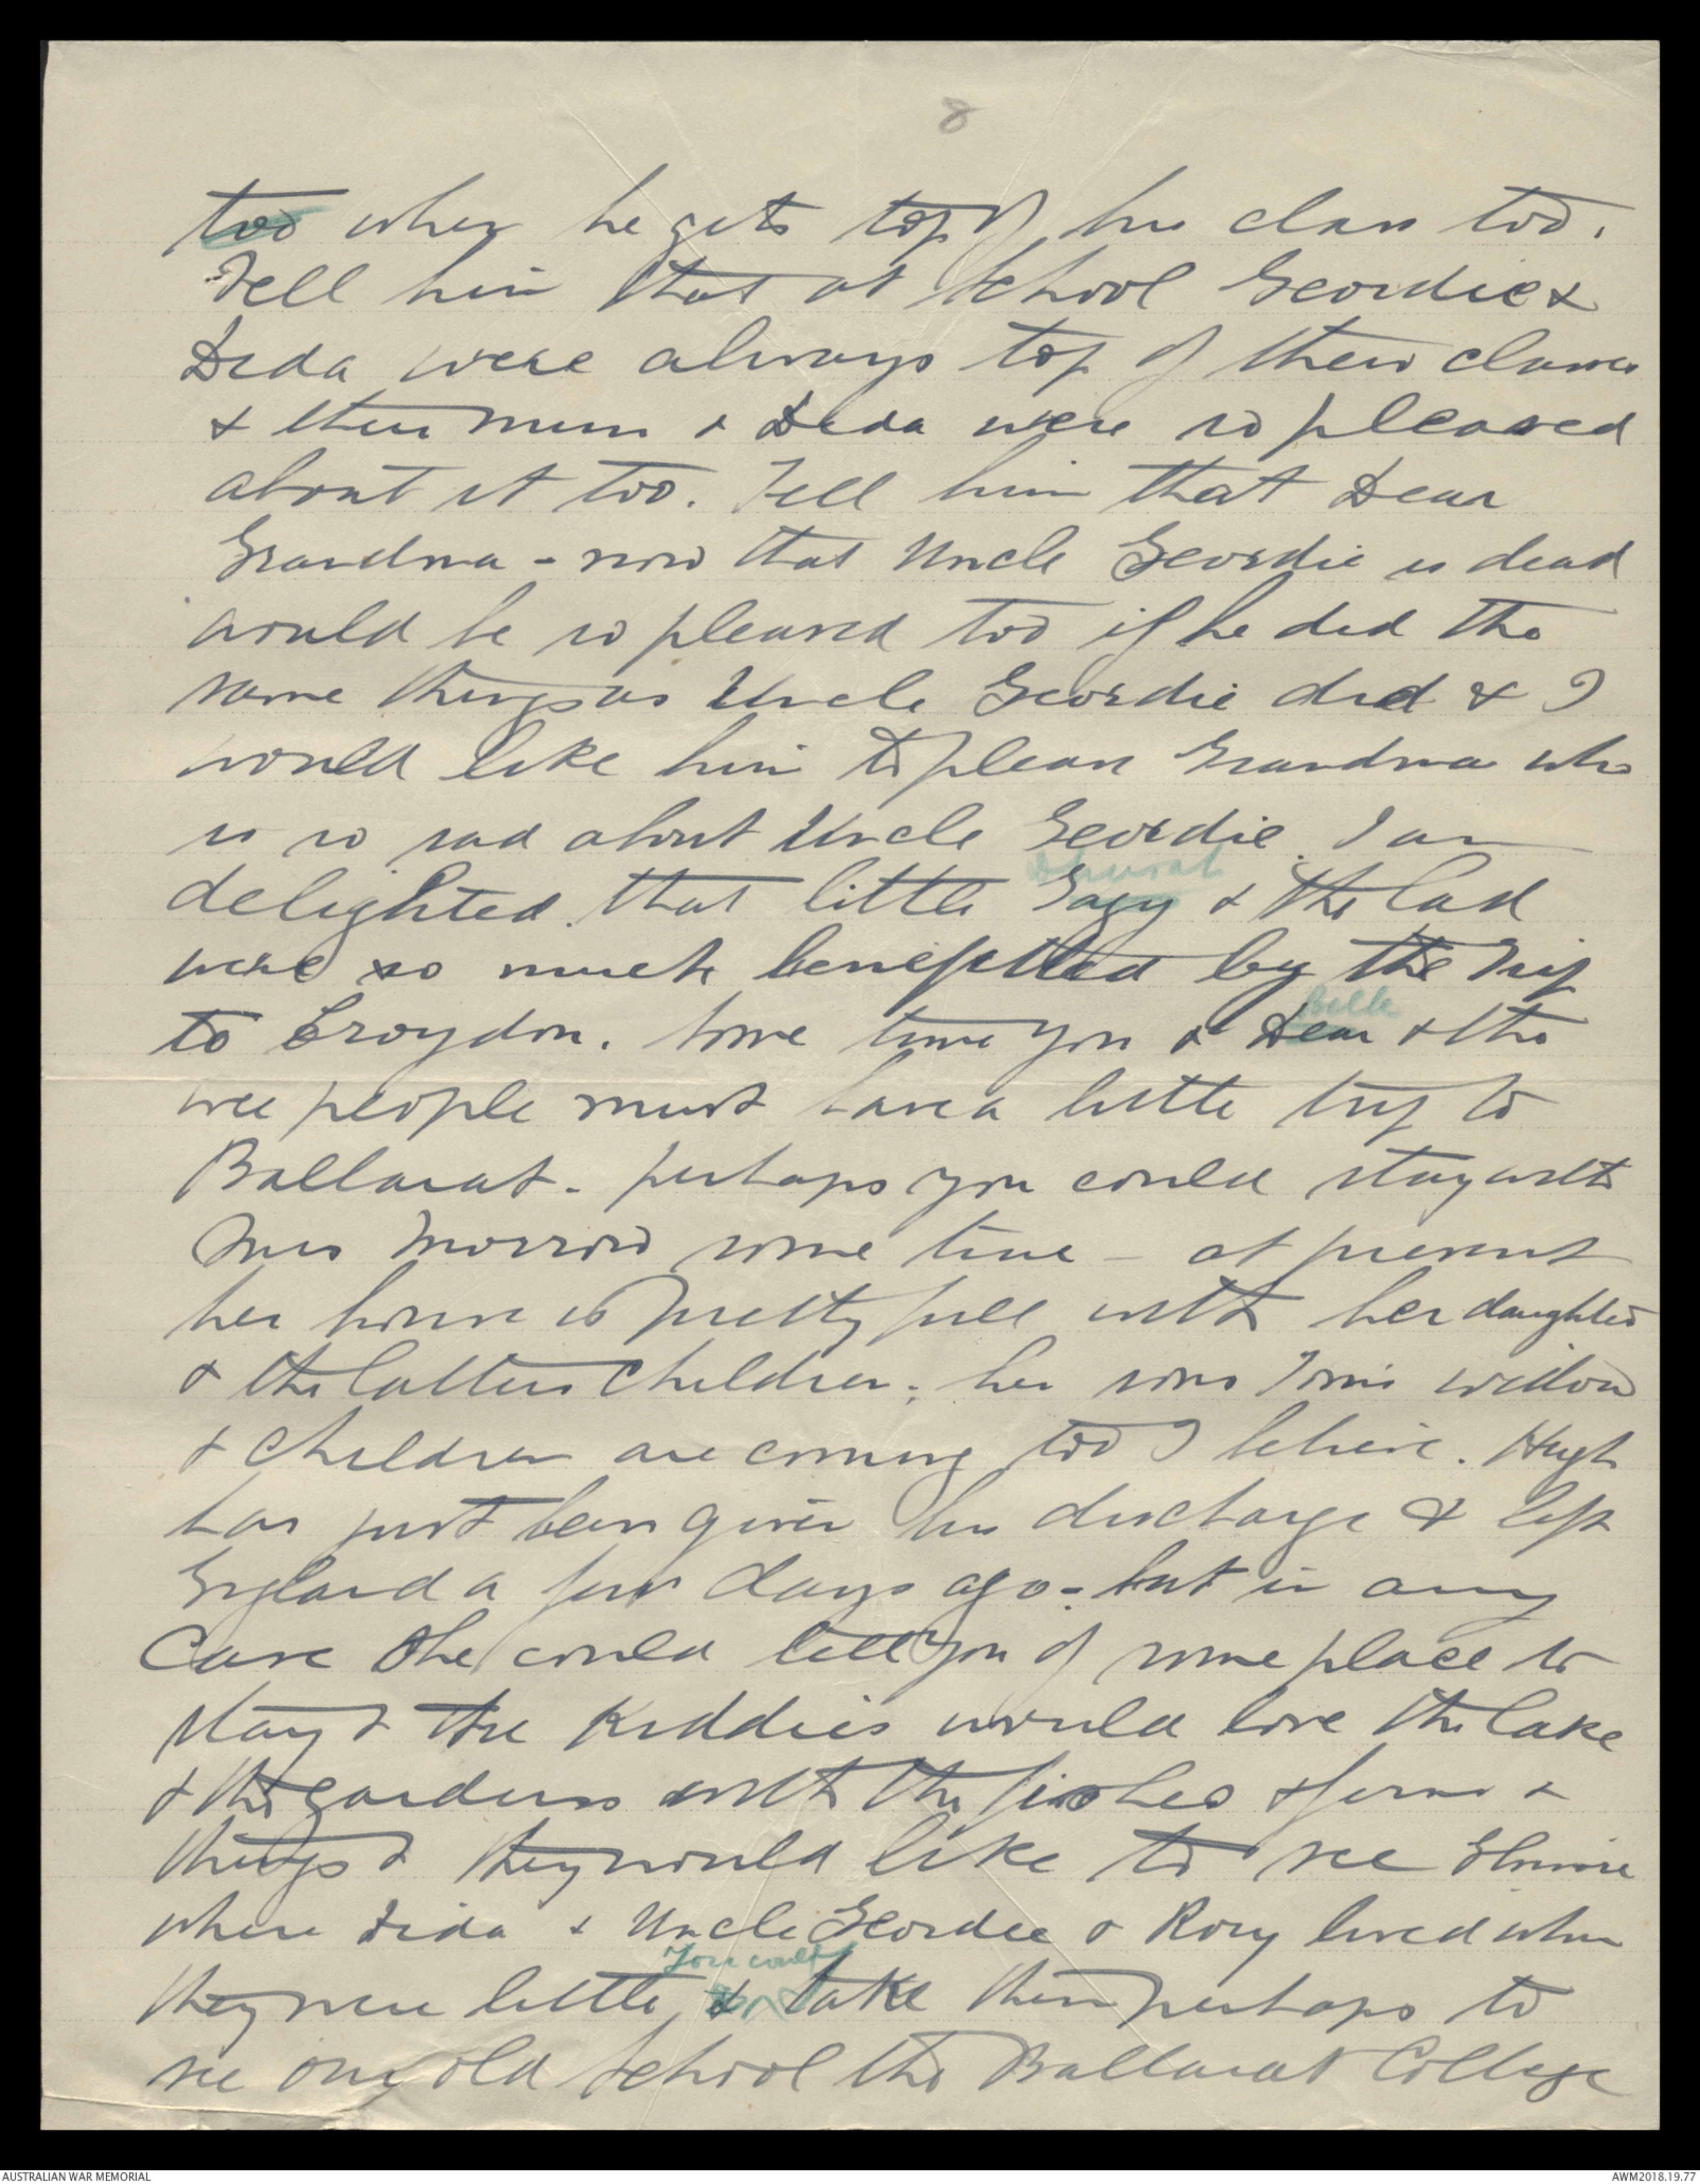 8
too when he gets top of his class too.
Tell him that at School Geordie &
Dida were always top of their classes
& their mum & Dida were so pleased
about it too. Tell him that Dear
Grandma - now that Uncle Geordie is dead
would be so pleased too if he did the
same things as Uncle Geordie did & I
would like him to please Grandma who
is so sad about Uncle Geordie. I am
delighted that little Gagy & the Lad
were so much benefitted by the trip
Belle
to Croydon. Some time you & Dear & the
wee people must have a little trip to
Ballarat - perhaps you could stay with
Mrs Morrow some time - at present
her house is pretty full with her daughter
& the latters children; her sons Tom's widow
& children are coming too I believe. Hugh
has just been given his discharge & left
England a few days ago - but in any
case she could tell you of some place to
stay & the Kiddies would love the lake
& the gardens with the fishes & ferns &
things & they would like to see
where Dida & Uncle Geordie & Rory lived when
You could
they were little, & take them perhaps to
see our old School the Ballarat College
AUSTRALIAN WAR MEMORIAL
AWM2018.19.77